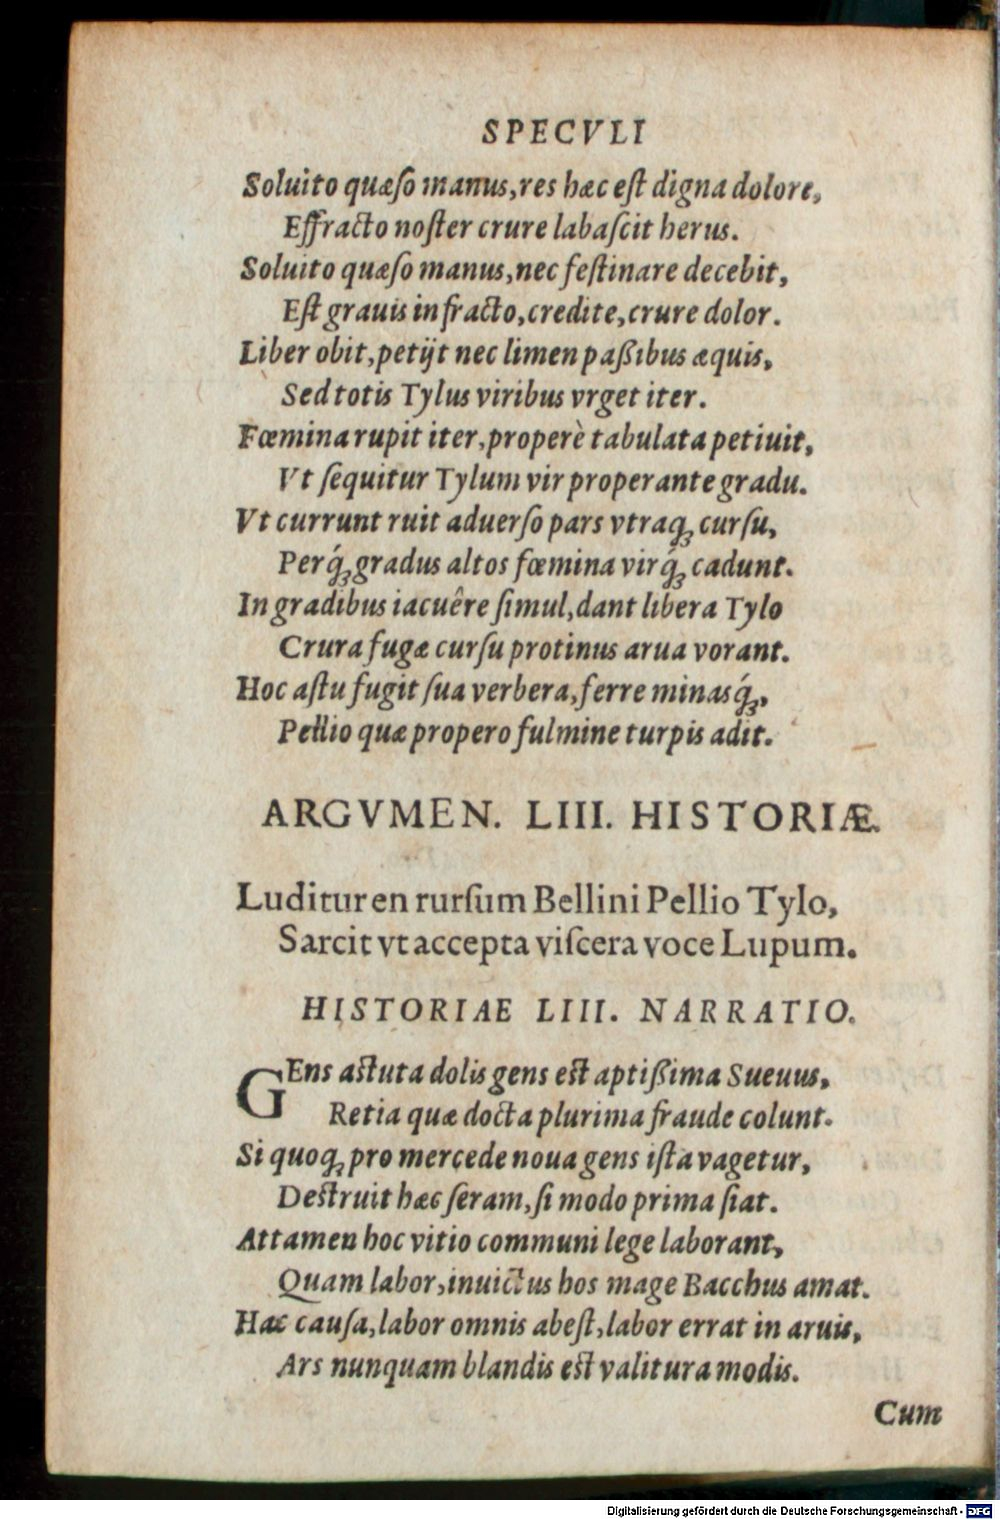 SPECVLI
Soluito quæſo manus, res hæc eſt digna dolore,
Effracto noſter crure labaſcit herus.
Soluito quæſo manus, nec feſtinare decebit,
Eſt grauis infracto, credite, crure dolor.
Liber obit, petijt nec limen paßibus æquis,
Sed totis Tylus viribus vrget iter.
Fœmina rupit iter, properè tabulata petiuit,
Vt ſequitur Tylum vir properante gradu.
Vt currunt ruit aduerſo pars vtraq; curſu,
Perq́; gradus altos fœmina virq́; cadunt.
In gradibus iacuêre ſimul, dant libera Tylo
Crura fugæ curſu protinus arua vorant.
Hoc aſtu fugit ſua verbera, ferre minasq́;,
Pellio quæ propero fulmine turpis adit.
ARGVMEN. LIII. HISTORIÆ.
Luditur en rurſum Bellini Pellio Tylo,
Sarcit vt accepta viſcera voce Lupum.
HISTORIAE LIII. NARRATIO.
GEns aſtuta dolis gens eſt aptißima Sueuus,
Retia quæ docta plurima fraude colunt.
Si quoq; pro mercede noua gens iſta vagetur,
Deſtruit hæc ſeram, ſi modo prima ſiat.
Attamen hoc vitio communi lege laborant,
Quam labor, inuictus hos mage Bacchus amat.
Hac cauſa, labor omnis abeſt, labor errat in aruis,
Ars nunquam blandis eſt valitura modis.
Cum
Digitalisierung gefördert durch die Deutsche Forschungsgemeinschaft - DFG